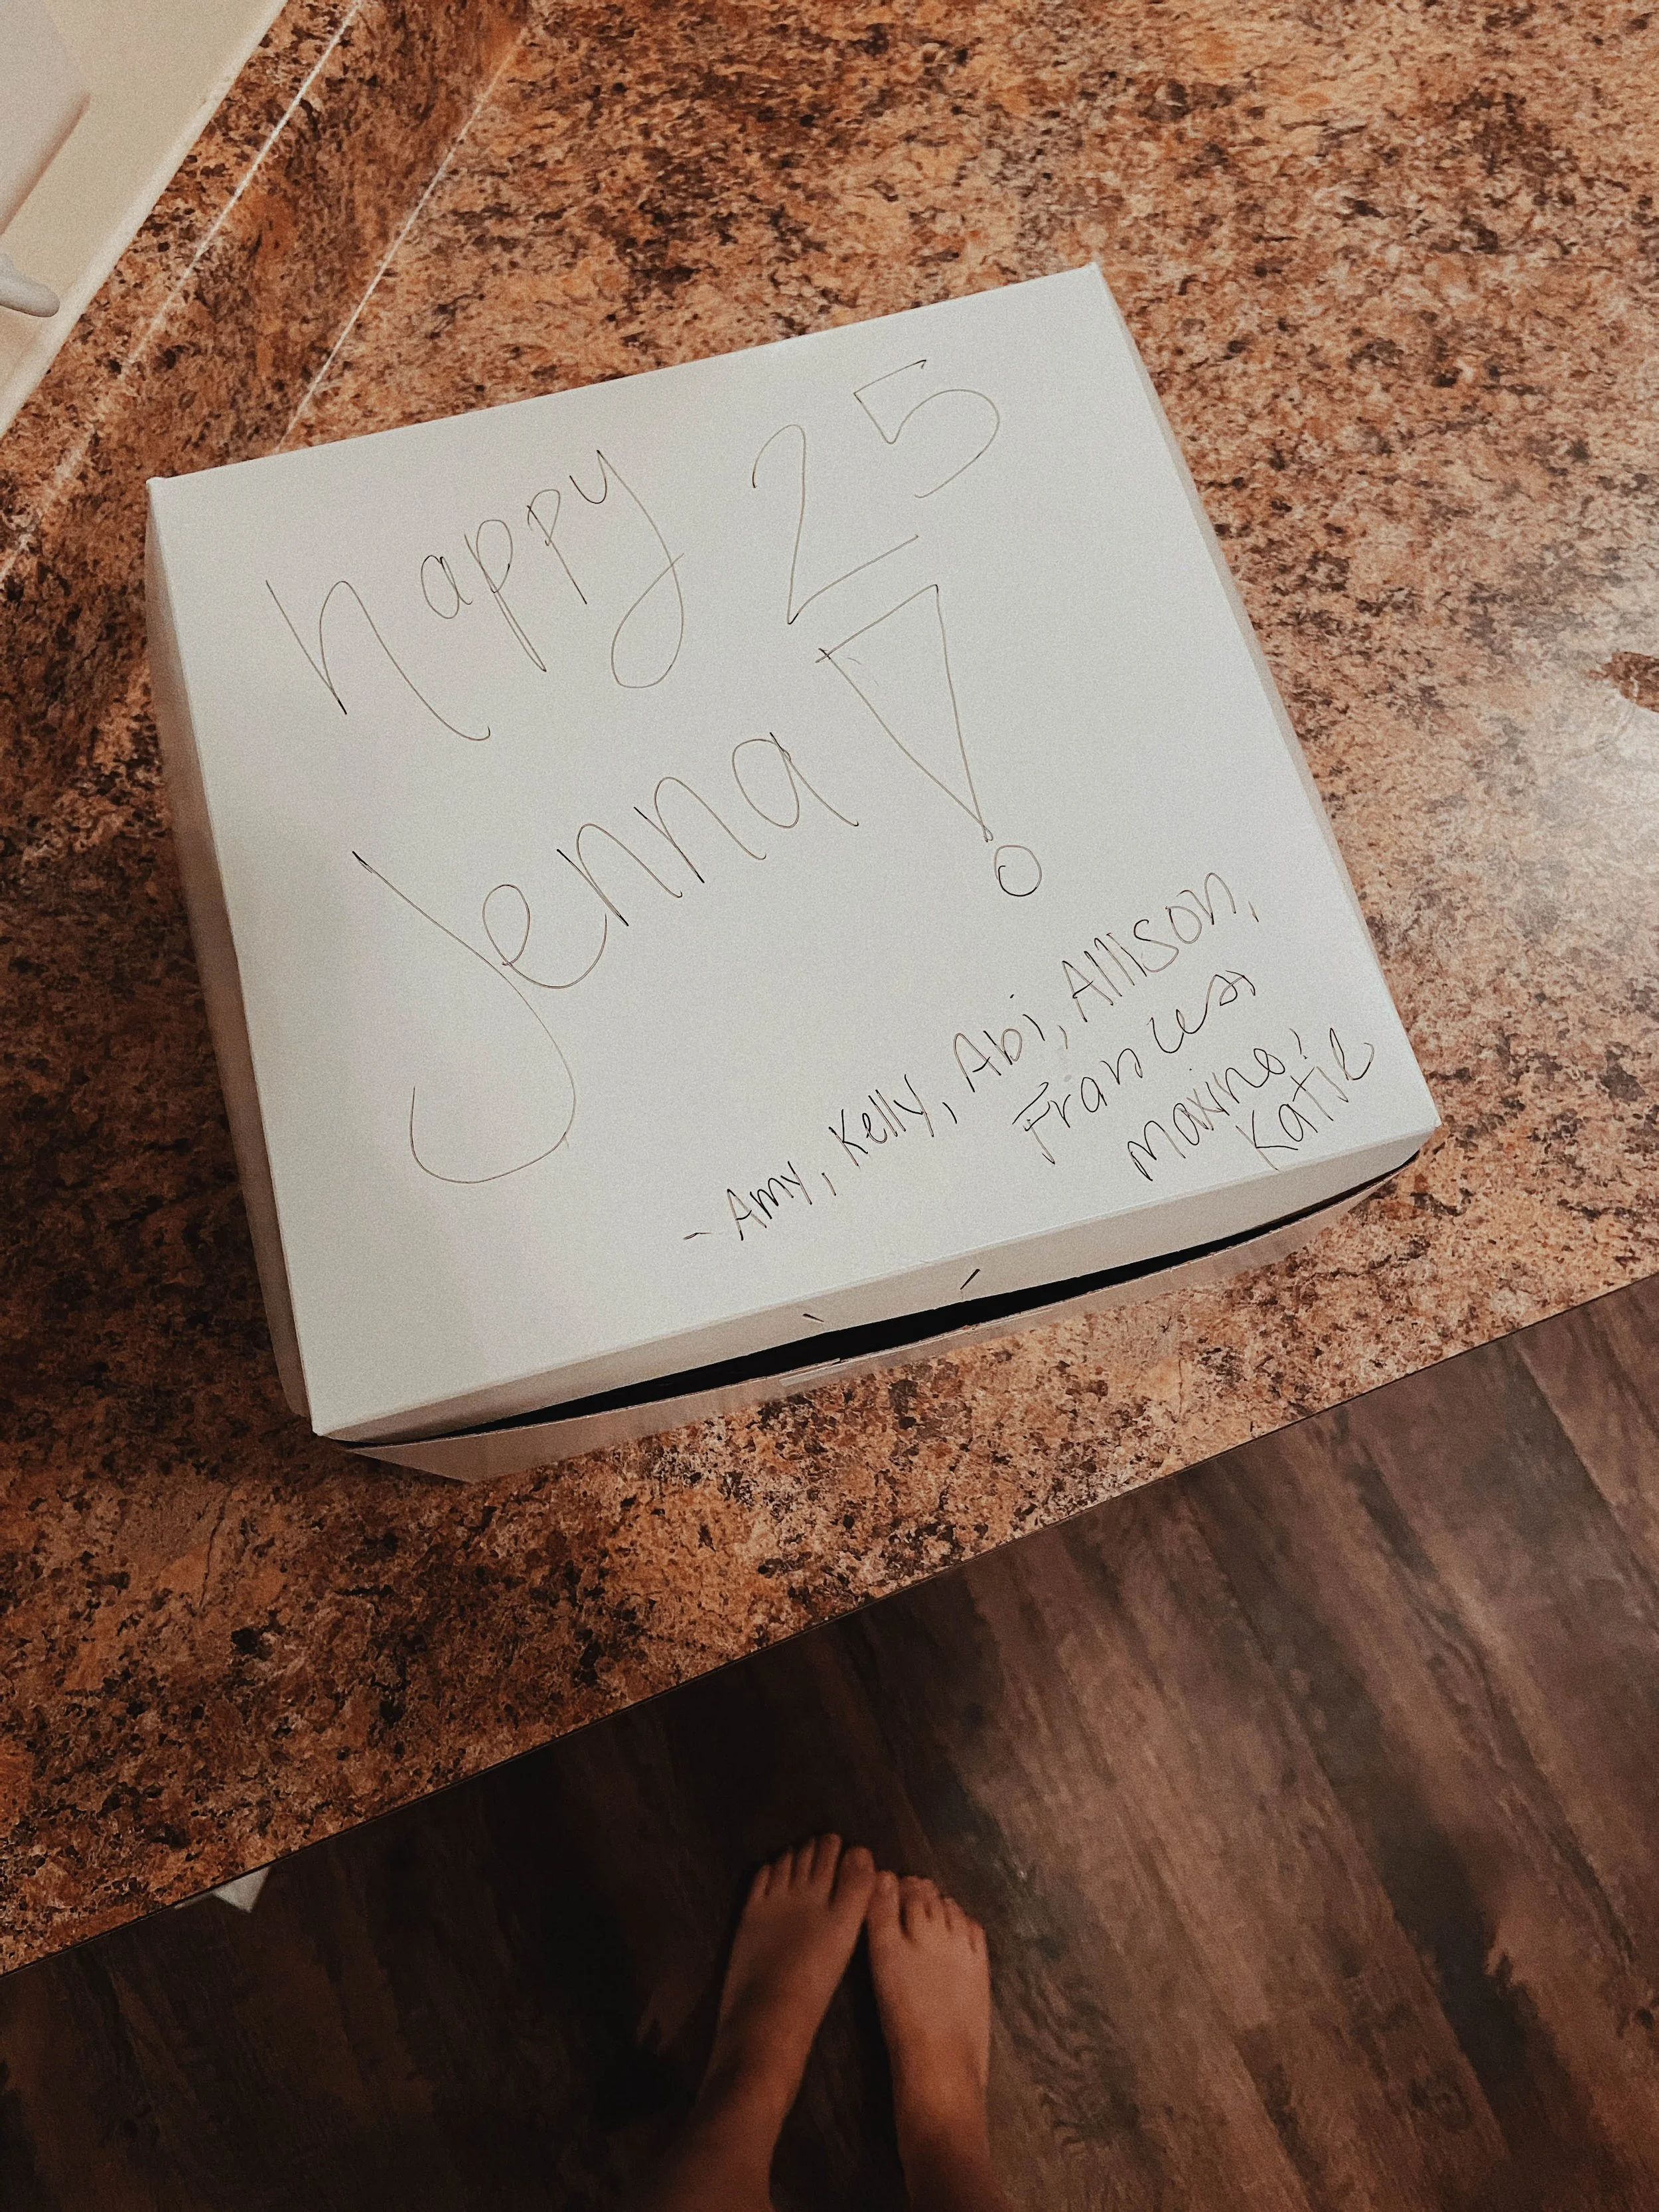 happy 25
Jenna!
- Amy, Kelly, Abi, Allison,
Frances,
Maxine,
Katie